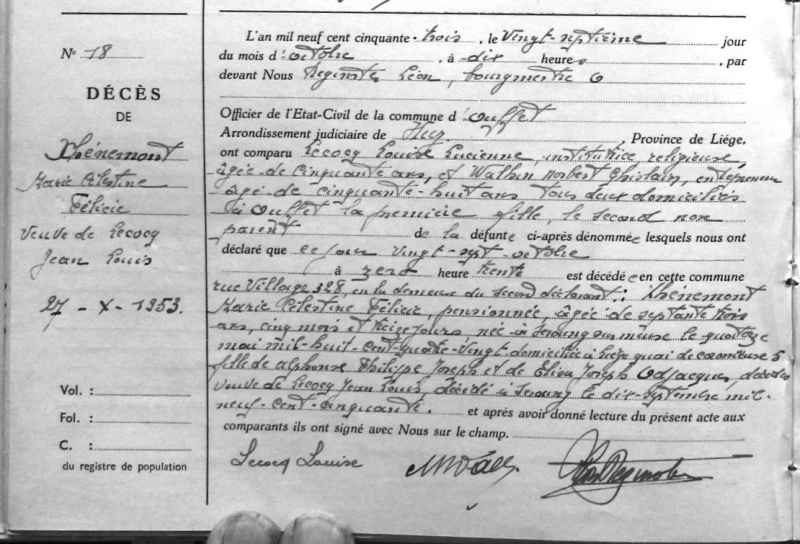 N° 18
DÉCÈS
DE
Thénemont
Marie Célestine
Félicie
Veuve de Lecocq
Jean Louis
27 - X - 1953.
Vol. :
Fol. :
C. :
du registre de population
L'an mil neuf cent cinquante-trois, le Vingt-septième jour
du mois d'octobre, à dix heures, par
devant Nous Léon, bourgmestre
Officier de l'Etat-Civil de la commune d'Ouffet
Arrondissement judiciaire de Huy, Province de Liège,
ont comparu Lecocq Louise Lucienne, institutrice religieuse,
âgée de cinquante ans, et Wathin Norbert Ghislain, entrepreneur
âgé de cinquante-huit ans tous deux domiciliés
à Ouffet la première fille, le second non
parent de la défunte ci-après dénommée lesquels nous ont
déclaré que ce jour vingt-sept octobre
à zero heure trente est décédée en cette commune
rue Village 328, en la demeure du second déclarant : Thénemont
Marie Célestine Félicie, pensionnée, âgée de septante trois
ans, cinq mois et treize jours née à Seraing sur meuse le quatorze
mai mil-huit-cent-quatre-vingt domiciliée à Liège quai de coronmeuse 5
fille de Alphonse Philippe Joseph et de Elisa Joseph Odjacques, décédés
Veuve de Lecocq Jean Louis, décédé à Seraing le dix-septembre mil-
neuf-cent-cinquante. et après avoir donné lecture du présent acte aux
comparants ils ont signé avec Nous sur le champ.
Lecocq Louise